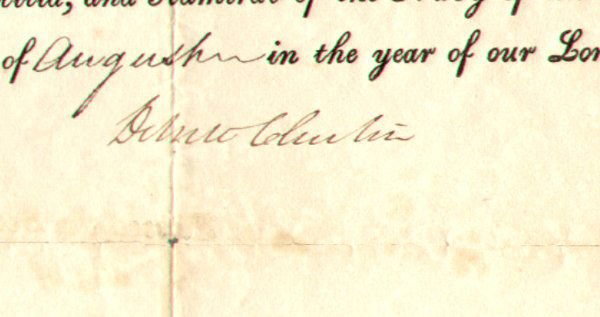 and Admiral of the Navy of
of August in the year of our Lor
DeWitt Clinton